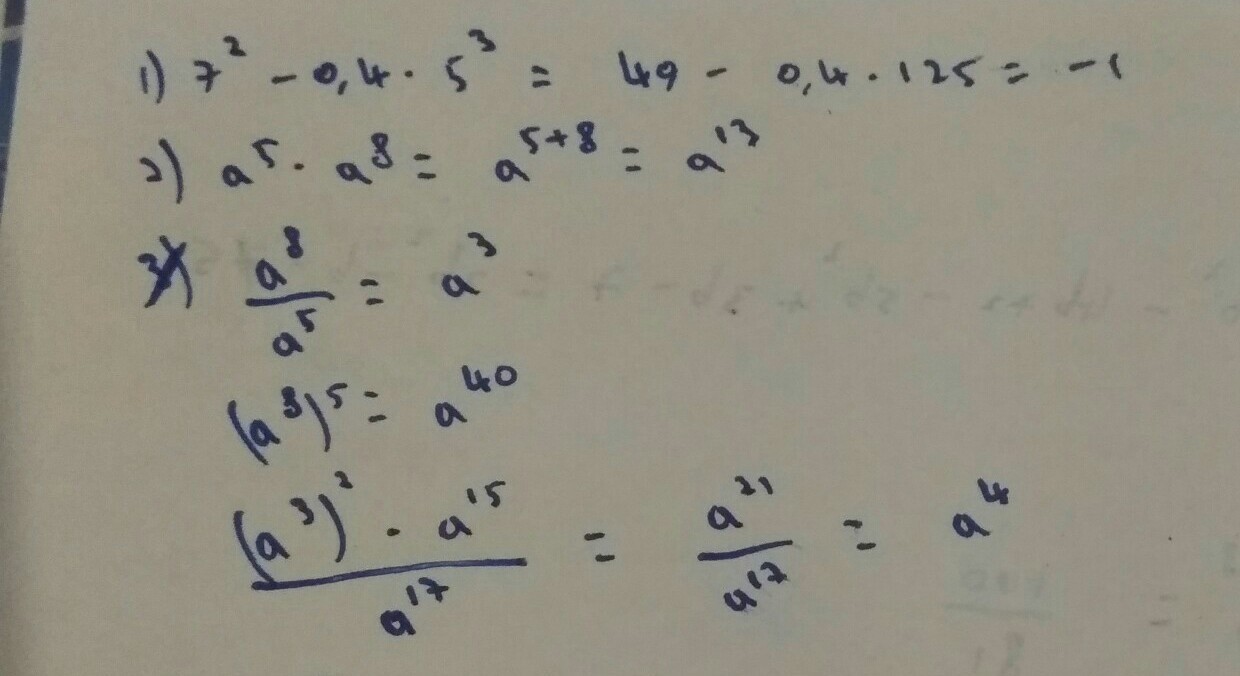 1) 7² - 0,4 · 5³ = 49 - 0,4 · 125 = -1
2) a⁵ · a⁸ = a⁵⁺⁸ = a¹³
a⁸/a⁵ = a³
(a⁸)⁵ = a⁴⁰
(a³)² · a¹⁵/a¹⁷ = a²¹/a¹⁷ = a⁴